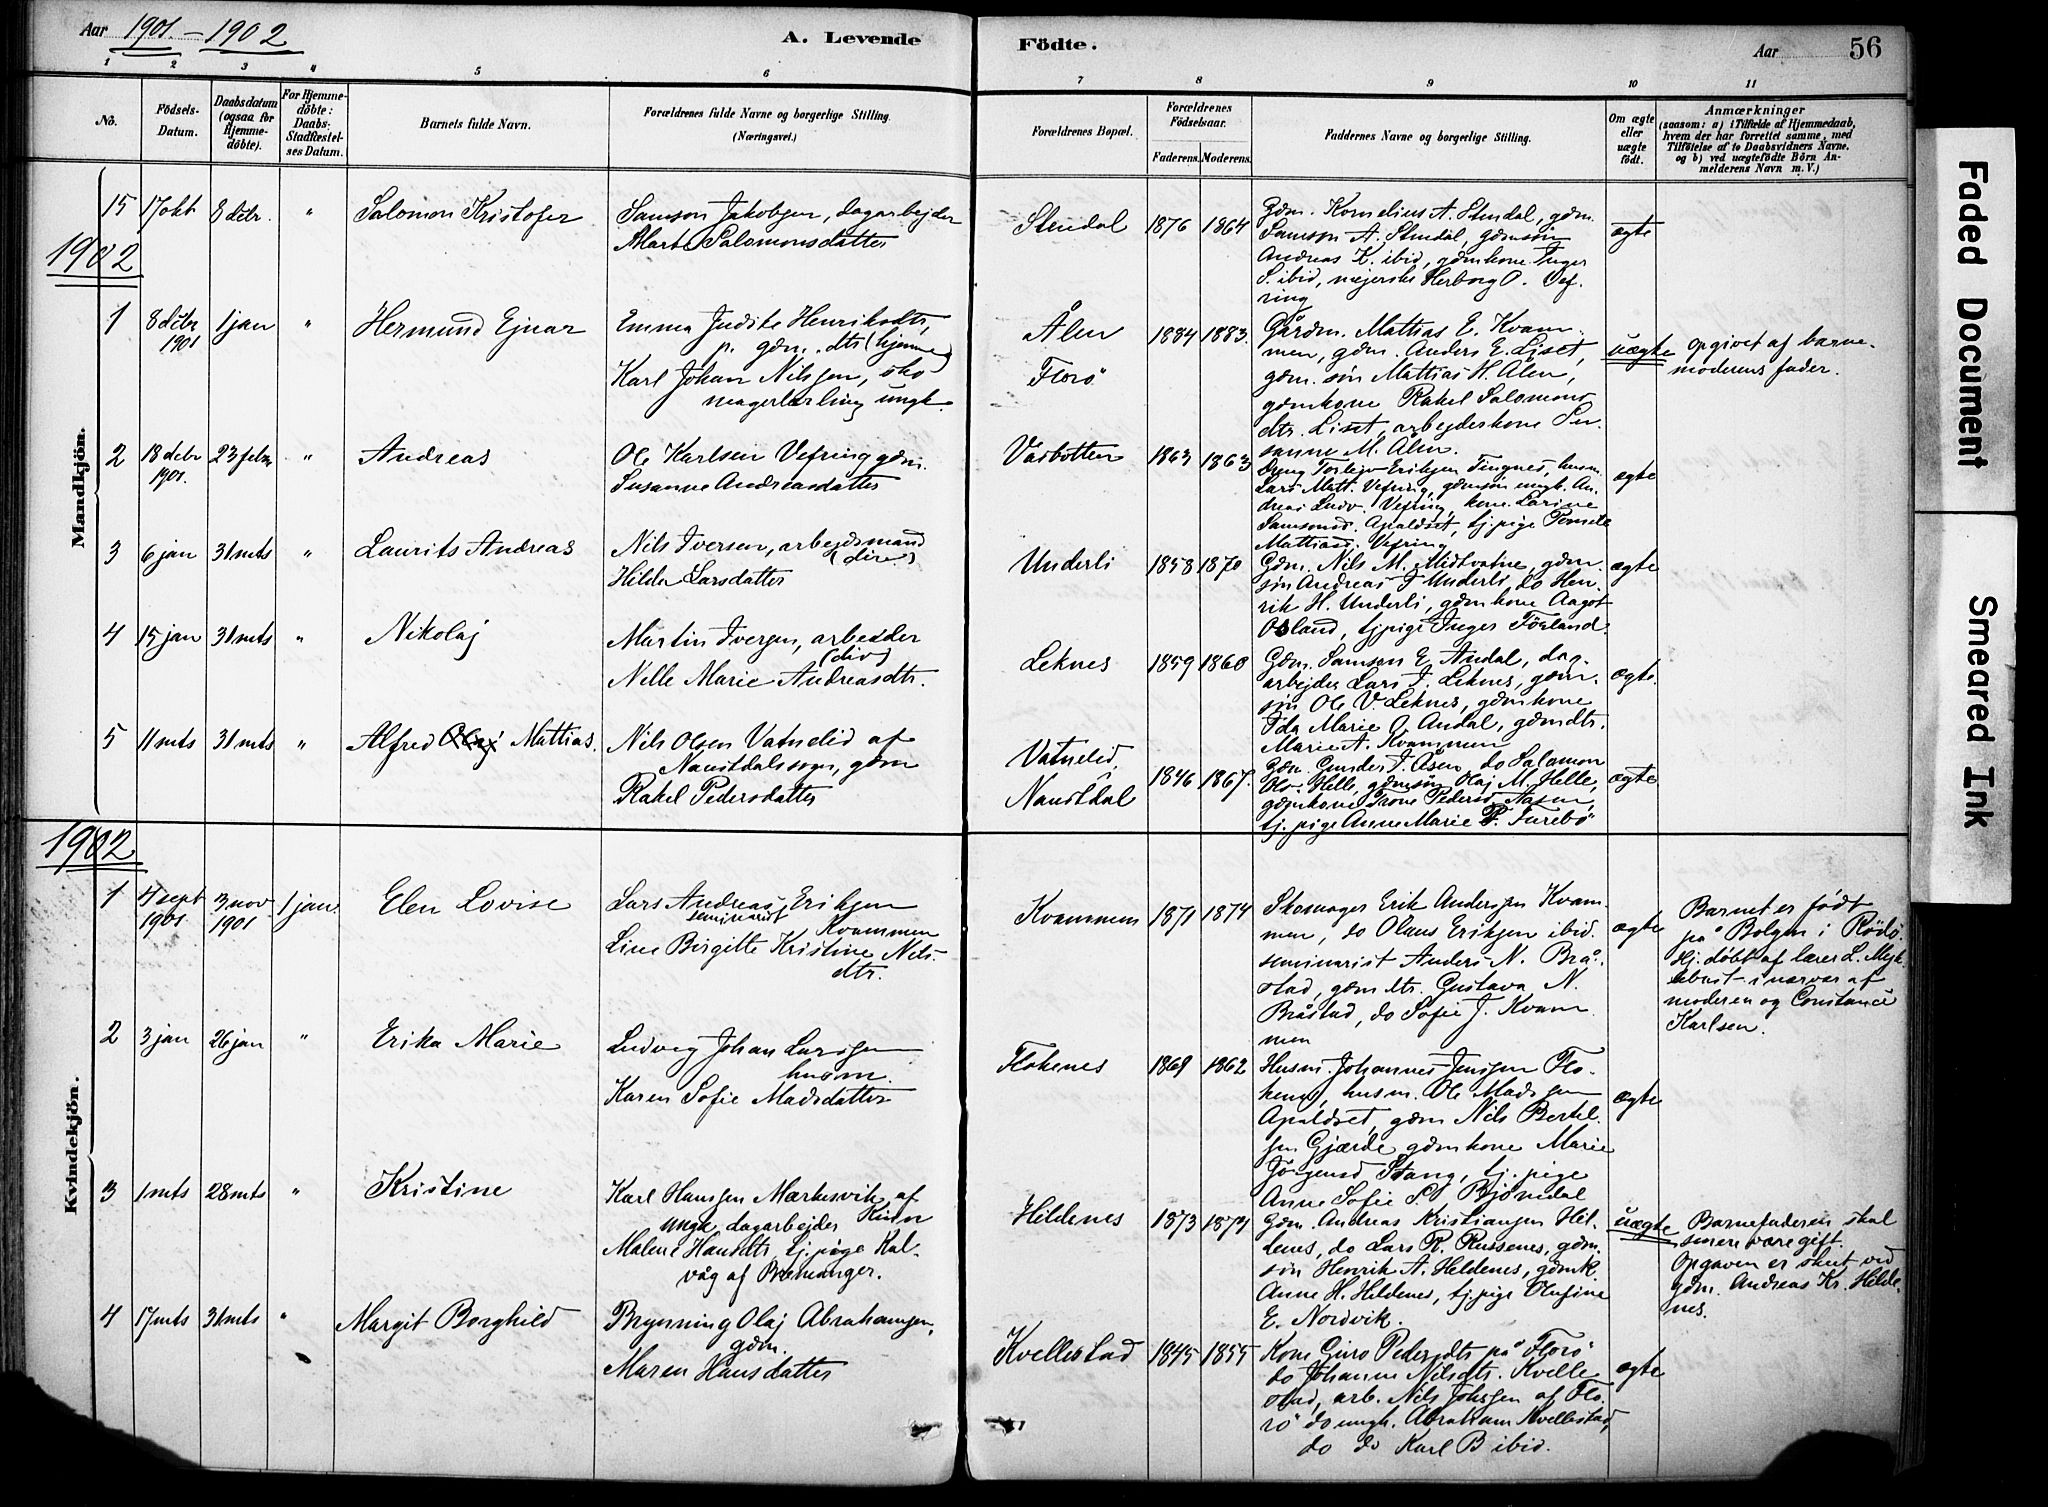 Aar 1901. – 1902
A. Levende
Födte.
Aar
56
1 2 3 4 5 6 7 8 9 10 11
No.
Födsels-
Datum.
Daabsdatum
(ogsaa for
Hjemme-
döbte).
For Hjemme-
döbte:
Daabs-
Stadfæstel-
ses Datum.
Barnets fulde Navn.
Forældrenes fulde Navne og borgerlige Stilling.
(Næringsvei.)
Forældrenes Bopæl.
Forældrenes
Födselsaar.
Faderens. Moderens.
Faddernes Navne og borgerlige Stilling.
Om ægte
eller
uægte
födt.
Anmærkninger
(saasom: a) i Tilfælde af Hjemmedaab,
hvem der har forrettet samme, med
Tilföielse af to Daabsvidners Navne.
og b) ved uægtefödte Börn An-
melderens Navn m. V.)
Mandkjön.
15 17 okt 8 debr. " Salomon Kristofer
Samson Jakobsen, dagarbejder
Marte Salomonsdatter
Stendal 1876 1864
Gdm. Kornelius A. Stendal, gdm.
Samson A. Stendal, gdmsön
Andreas K. ibid, gdmkone Inger
S. ibid, mejerske Herborg O. Vef-
ring
ægte
1902
1 8 debr 1901 1 jan " Hermund Ejnar
Emma Judite Henriksdtr,
p. gdm. dtr (hjemme)
Karl Johan Nilssen, sko
magerlærling ungk.
Ålen
Florö
1884 1883.
Gårdm. Mattias E. Kvam-
men, gdm. Anders E. Liset,
gdm. sön Mattias H. Ålen,
gdmkone Rakel Salomons
dtr. Liset, arbejderkone Su-
sanne M. Ålen.
uægte
Opgivet af barne-
moderens fader.
2 18 debr 1901. 23 febr " Andreas
Ole Karlsen Vefring gdm.
Susanne Andreasdatter
Vasbotten 1863 1863
Dreng Torleiv Eriksen Tingnes, husm.
Lars Matt. Vefring, gdmsön ungk. An-
dreas Ludv. Vefring, kone Larine
Samsonsd. Apaldset, tj. pige Pernele
Mattiasd. Vefring
ægte
3 6 jan 31 mts " Laurits Andreas
Nils Iversen, arbejdsmand
(div.)
Hilda Larsdatter
Underli 1858 1870
Gdm. Nils M. Midtvatne, gdm.
sön Andreas I Underli, do Hen-
rik H. Underli, gdmkone Aagot
Osland, tj pige Inger Förland.
ægte
4 15 jan 31 mts " Nikolaj
Martin Iversen, arbeider
(div)
Nelle Marie Andreasdtr.
Leknes 1859 1860
Gdm. Samson E. Andal, dag-
arbejder Lars I. Leknes, gdm-
sön Ole V. Leknes, gdmkone
Ida Marie O. Andal, gdmdtr.
Marie A. Kvammen
ægte.
5 11 mts 31 mts " Alfred Olaj Mattias.
Nils Olsen Vatnelid af
Naustdals sogn, gdm
Rakel Pedersdatter
Vatnelid,
Naustdal
1846 1867.
Gdm. Gunder I. Åsen, do Salamon
Ols. Helle, gdmsön Olaj M. Helle,
gdmkone Trone Pedersd. Aasen,
tj. pige Anne Marie P. Furebö
ægte
1902
Kvindekjön.
1 4 sept 1901 3 nov 1901 1 jan. Elen Lovise
Lars Andreas Eriksen
seminarist Kvammen
Line Birgitte Kristine Nils-
dtr.
Kvammen 1871 1874
Skomager Erik Anderssen Kvam-
men, do Olaus Eriksen ibid.
seminarist Anders N. Brå-
stad, gdm dtr. Gustava N.
Bråstad, do Sofie J. Kvam
men
ægte
Barnet er födt
på Bolgen i Rödö.
Hj. döbt af lærer L. Myk-
lebust i nærvær af
moderen og Constance
Karlsen.
2 3 jan 26 jan " Erika Marie
Ludvig Johan Larssen
husm.
Karen Sofie Madsdatter
Flokenes 1869 1862
Husm. Johannes Jenssen Flo-
kenes, husm. Ole Madssen
Apaldset, gdm Nils Bertel-
sen Gjærde, gdmkone Marie
Jörgensd Stang, tj. pige
Anne Sofie S. Björndal
ægte
3 1 mts 28 mts " Kristine
Karl Hanssen Markusvik af
ungk. dagarbejder Kinn
Malene Hansdtr. tj. pige Kal-
våg af Bremanger.
Hildenes 1873 1874
Gdm. Andreas Kristianssen Hil-
denes, do Lars R. Russenes, gdm.
sön Henrik A. Hildenes, gdmk.
Anne H. Hildenes, tj. pige Olufine
E. Nordvik.
uægte
Barnefaderen skal
senere være gift.
Opgaven er skeet ved
gdm. Andreas Kr. Hilde-
nes.
4 17 mts 31 mts " Margit Borghild
Brynning Olaj Abrahamsen,
gdm.
Maren Hansdatter
Kvellestad 1845 1855
Kone Guro Pedersdtr på Florö
do Johanne Nilsdtr. Kvelle
stad, arb. Nils Johssen af Flo-
rö do ungk. Abraham Kvellestad,
do do Karl B ibid.
ægte
Faded Document
Smeared Ink